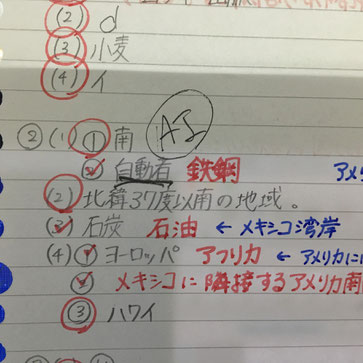 (2) d
(3) 小麦
(4) イ
② (1) ① 南 AI
② 自動者 鉄鋼 アメ
(2) 北緯37度以南の地域。
(3) 石炭 石油 ← メキシコ湾岸
(4) ① ヨーロッパ アフリカ ← アメリカに
② メキシコに隣接するアメリカ南
③ ハワイ